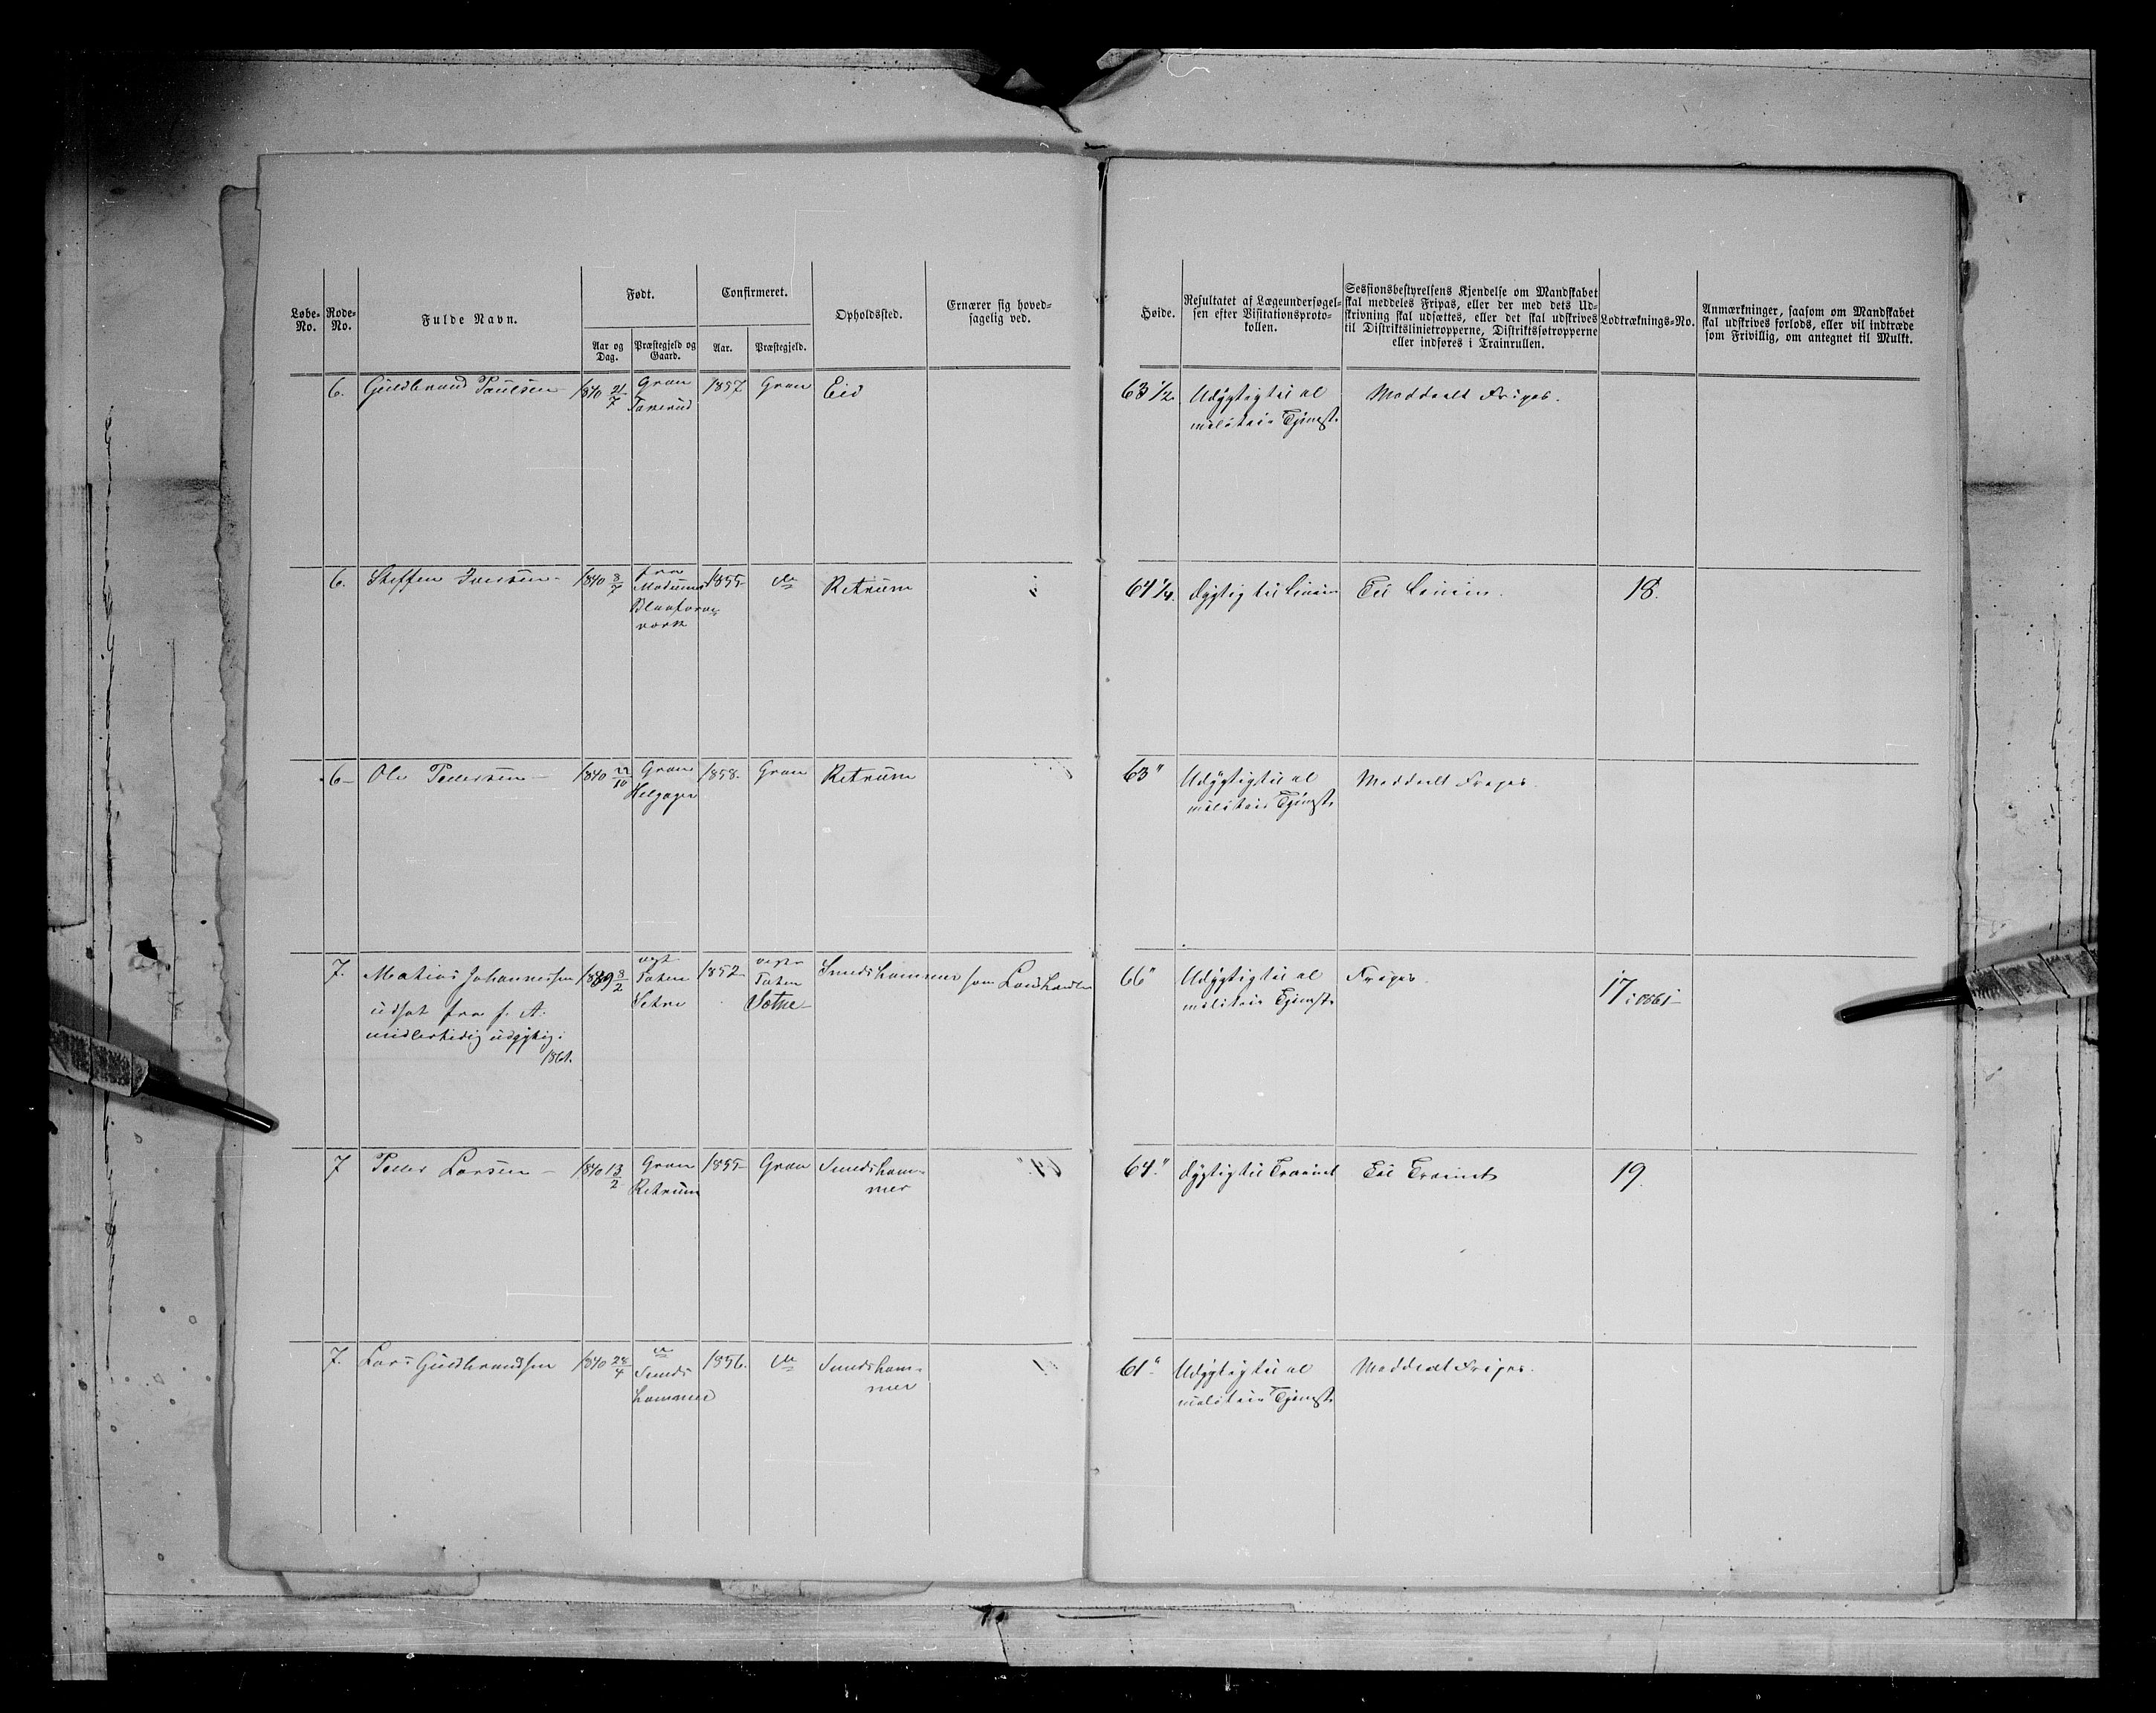 Løbe-No.
Rode-No.
Fulde Navn.
Født.
Aar og Dag.
Præstegjeld og Gaard.
Confirmeret.
Aar.
Præstegjeld.
Opholdssted.
Ernærer sig hoved-
sagelig ved.
Høide.
Resultatet af Lægeundersøgel-
sen efter Visitationsproto-
kollen.
Sessionsbestyrelsens Kjendelse om Mandskabet
skal meddeles Fripas, eller der med dets Ud-
skrivning skal udsættes, eller det skal udskrives
til Distriktslinietropperne, Distriktsfotropperne
eller indføres i Trainrullen.
Lodtræknings-No.
Anmærkninger, saasom om Mandskabet
skal udskrives forlods, eller vil indtræde
som Frivillig, om antegnet til Mulkt.
6. Guldbrand Paulsen 1840 21/7 Gran 1857 Gran Eid 63 1/2 Udygtig til al Meddeelt Fripas.
militair Tjenest.
6. Steffen Iversen 1840 8/7 fra 1855 do Retrum 64 1/4. dygtig til Linien Til Linien. 18.
Modums
Blaafarve
værk
6 Ole Pedersen 1840 22/10 Gran 1858. Gran Retrum 63" Udygtig til al Meddeelt Fripas.
Helgager militair Tjenest.
7. Matias Johannessen 1839 8/2 vest 1852 vestre Smedshammer som Landhandler 66" Udygtig til al Fripas. 17 i 1861
udsat fra f. A. Toten Toten militair Tjenest.
midlertidig udygtig. Sethne
1861.
7 Peder Larsen 1840 13/2 Gran 1855 Gran Smedsham- 64." dygtig til Trainet Til Trainet 19.
Retrum mer
7. Lars Guldbrandsen 1840 28/4 do 1856. do Smedsham- 61" Udygtig til al Meddeelt Fripas.
Smeds mer militair Tjenest.
hammer